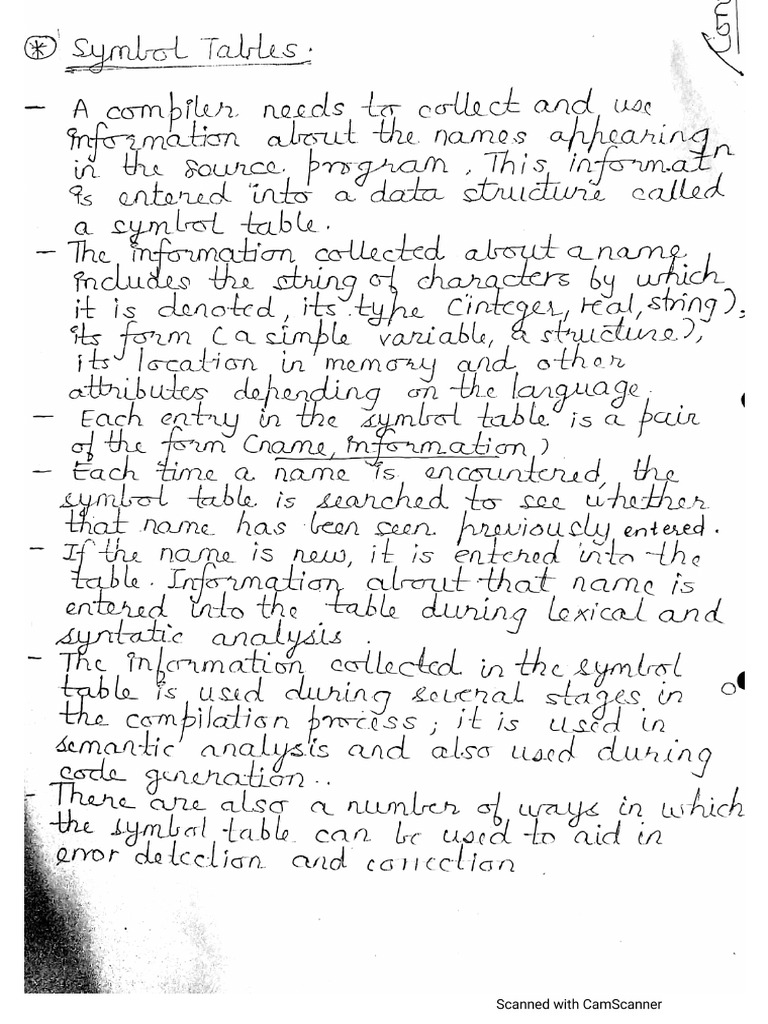 * Symbol Tables.
Con
- A compiler needs to collect and use
information about the names appearing
in the source program. This informatn
is entered into a data structure called
a symbol table.
- The information collected about a name
includes the string of characters by which
it is denoted, its type (integer, real, string),
its form (a simple variable, a structure),
its location in memory and other
attributes depending on the language.
- Each entry in the symbol table is a pair
of the form (name, information)
- Each time a name is encountered, the
symbol table is searched to see whether
that name has been seen previously entered.
- If the name is new, it is entered into the
table. Information about that name is
entered into the table during lexical and
syntatic analysis.
- The information collected in the symbol
table is used during several stages in
the compilation process; it is used in
semantic analysis and also used during
code generation..
- There are also a number of ways in which
the symbol table can be used to aid in
error detection and correction
Scanned with CamScanner